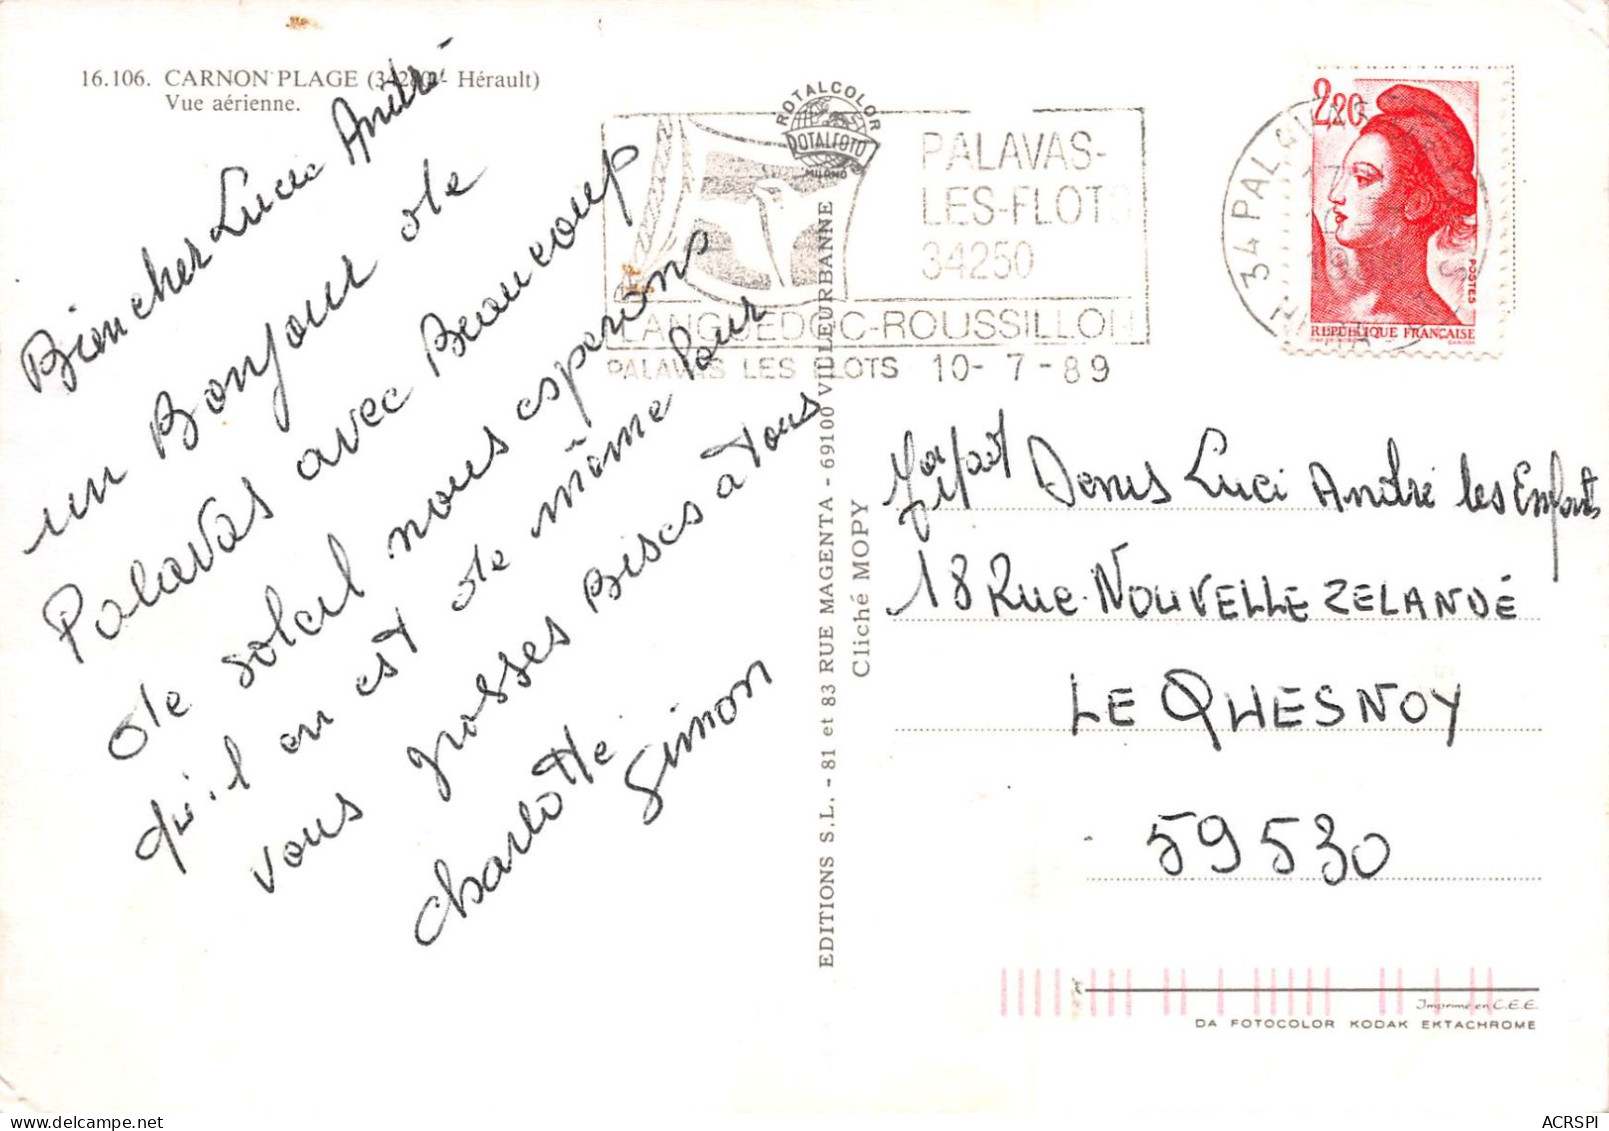 16.106. CARNON PLAGE (34280 - Hérault)
Vue aérienne.
Bien cher Lucie André
un Bonjour de
Palavas avec Beaucoup
de soleil nous esperons
qu'il en est de même pour
vous grosses Bises à tous
charlotte Simon
ROTALCOLOR
ROTALFOTO
MILANO
PALAVAS-
LES-FLOTS
34250
LANGUEDOC-ROUSSILLON
PALAVAS LES FLOTS 10-7-89
34 PALAVAS
2,20
POSTES
REPUBLIQUE FRANÇAISE
EDITIONS S.L. - 81 et 83 RUE MAGENTA - 69100 VILLEURBANNE
Cliché MOPY
Denis Luci André les Enfants
18 Rue NOUVELLE ZELANDE
LE QUESNOY
59530
Imprimé en C.E.E.
DA FOTOCOLOR KODAK EKTACHROME
ACRSPI